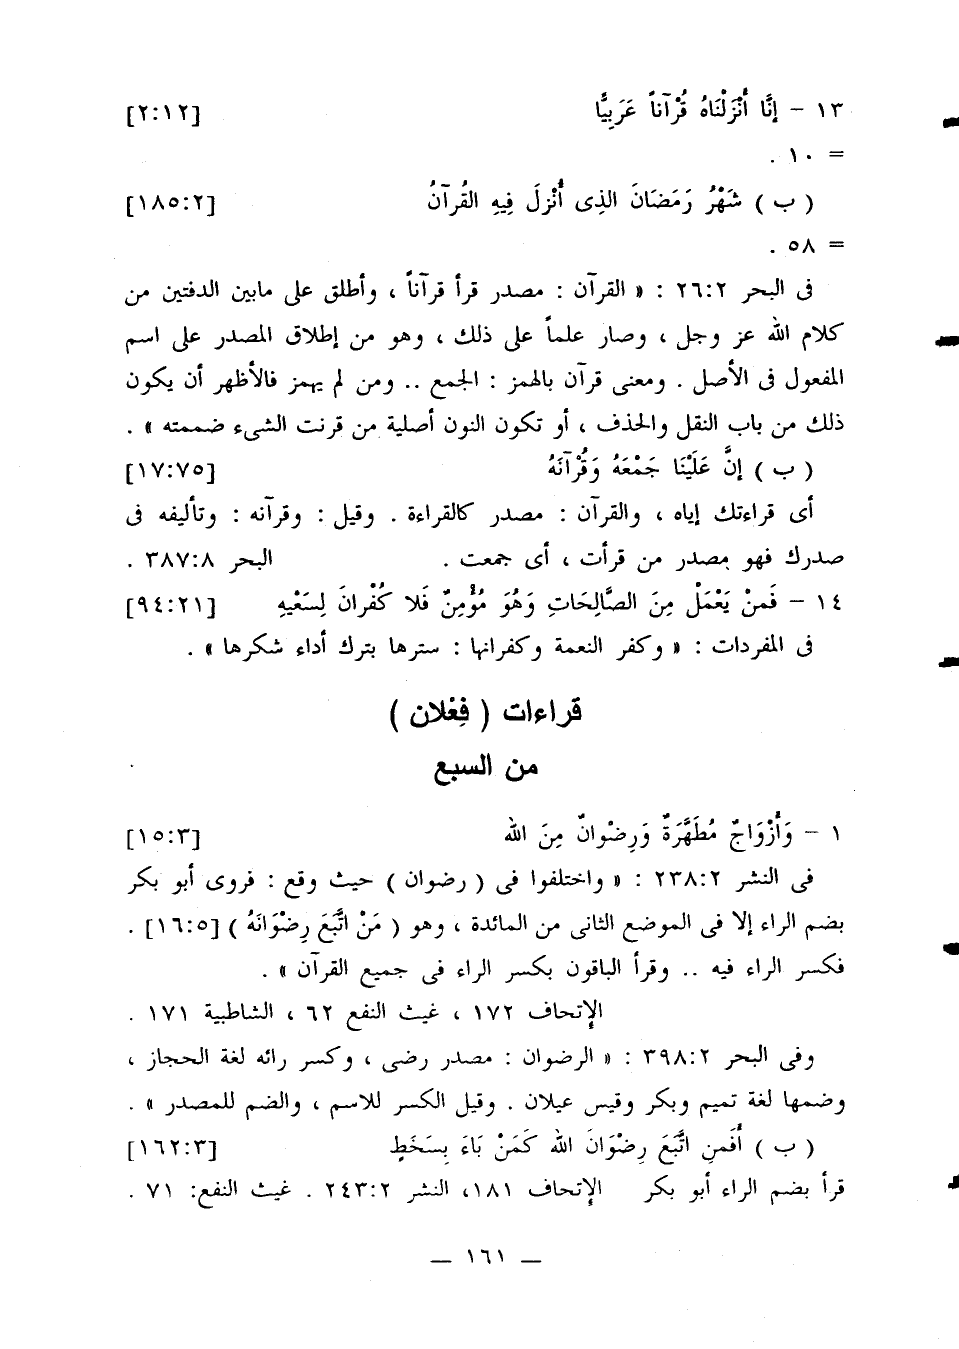 ١٣ – إِنَّا أَنْزَلْنَاهُ قُرْآناً عَرَبِيًّا [٢:١٢]
= ١٠ .
( ب ) شَهْرُ رَمَضَانَ الذِى أُنْزِلَ فِيهِ القُرْآنُ [١٨٥:٢]
= ٥٨ .
فى البحر ٢٦:٢ : « القرآن : مصدر قرأ قرآناً ، وأطلق على مابين الدفتين من
كلام الله عز وجل ، وصار علماً على ذلك ، وهو من إطلاق المصدر على اسم
المفعول فى الأصل . ومعنى قرآن بالهمز : الجمع .. ومن لم يهمز فالأظهر أن يكون
ذلك من باب النقل والحذف ، أو تكون النون أصلية من قرنت الشىء ضممته » .
( ب ) إِنَّ عَلَيْنَا جَمْعَهُ وَقُرْآنَهُ [١٧:٧٥]
أى قراءتك إياه ، والقرآن : مصدر كالقراءة . وقيل : وقرآنه : وتأليفه فى
صدرك فهو مصدر من قرأت ، أى جمعت . البحر ٣٨٧:٨ .
١٤ – فَمنْ يَعْمَلْ مِنَ الصَّالِحَاتِ وَهُوَ مُؤْمِنٌ فَلا كُفْرانَ لِسَعْيِهِ [٩٤:٢١]
فى المفردات : « وكفر النعمة وكفرانها : سترها بترك أداء شكرها » .
قراءات ( فِعْلان )
من السبع
١ – وَأَزْوَاجٌ مُطَهَّرَةٌ وَرِضْوانٌ مِنَ الله [١٥:٣]
فى النشر ٢٣٨:٢ : « واختلفوا فى ( رضوان ) حيث وقع : فروى أبو بكر
بضم الراء إلا فى الموضع الثانى من المائدة ، وهو ( مَنْ اتَّبَعَ رِضْوَانَهُ ) [١٦:٥] .
فكسر الراء فيه .. وقرأ الباقون بكسر الراء فى جميع القرآن » .
الإتحاف ١٧٢ ، غيث النفع ٦٢ ، الشاطبية ١٧١ .
وفى البحر ٣٩٨:٢ : « الرضوان : مصدر رضى ، وكسر رائه لغة الحجاز ،
وضمها لغة تميم وبكر وقيس عيلان . وقيل الكسر للاسم ، والضم للمصدر » .
( ب ) أَفَمنِ اتَّبَعَ رِضْوَانَ الله كَمَنْ بَاءَ بِسَخَطٍ [١٦٢:٣]
قرأ بضم الراء أبو بكر الإتحاف ١٨١، النشر ٢٤٣:٢ . غيث النفع: ٧١ .
— ١٦١ —